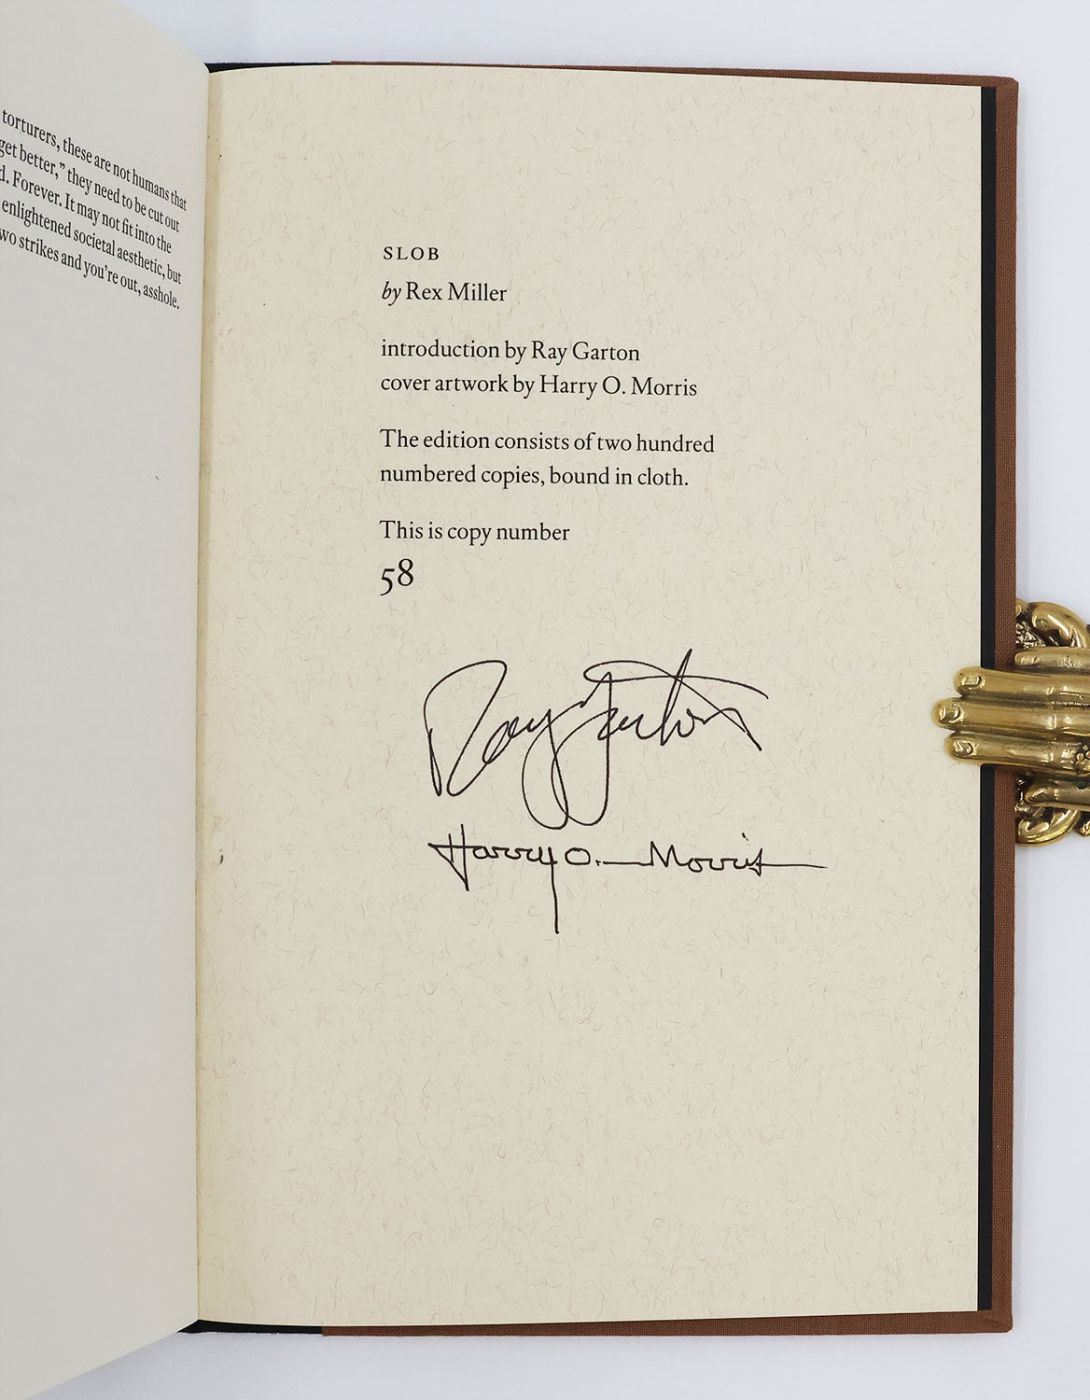 torturers, these are not humans that
get better,” they need to be cut out
d. Forever. It may not fit into the
enlightened societal aesthetic, but
wo strikes and you’re out, asshole.
SLOB
by Rex Miller
introduction by Ray Garton
cover artwork by Harry O. Morris
The edition consists of two hundred
numbered copies, bound in cloth.
This is copy number
58
Ray Garton
Harry O. Morris